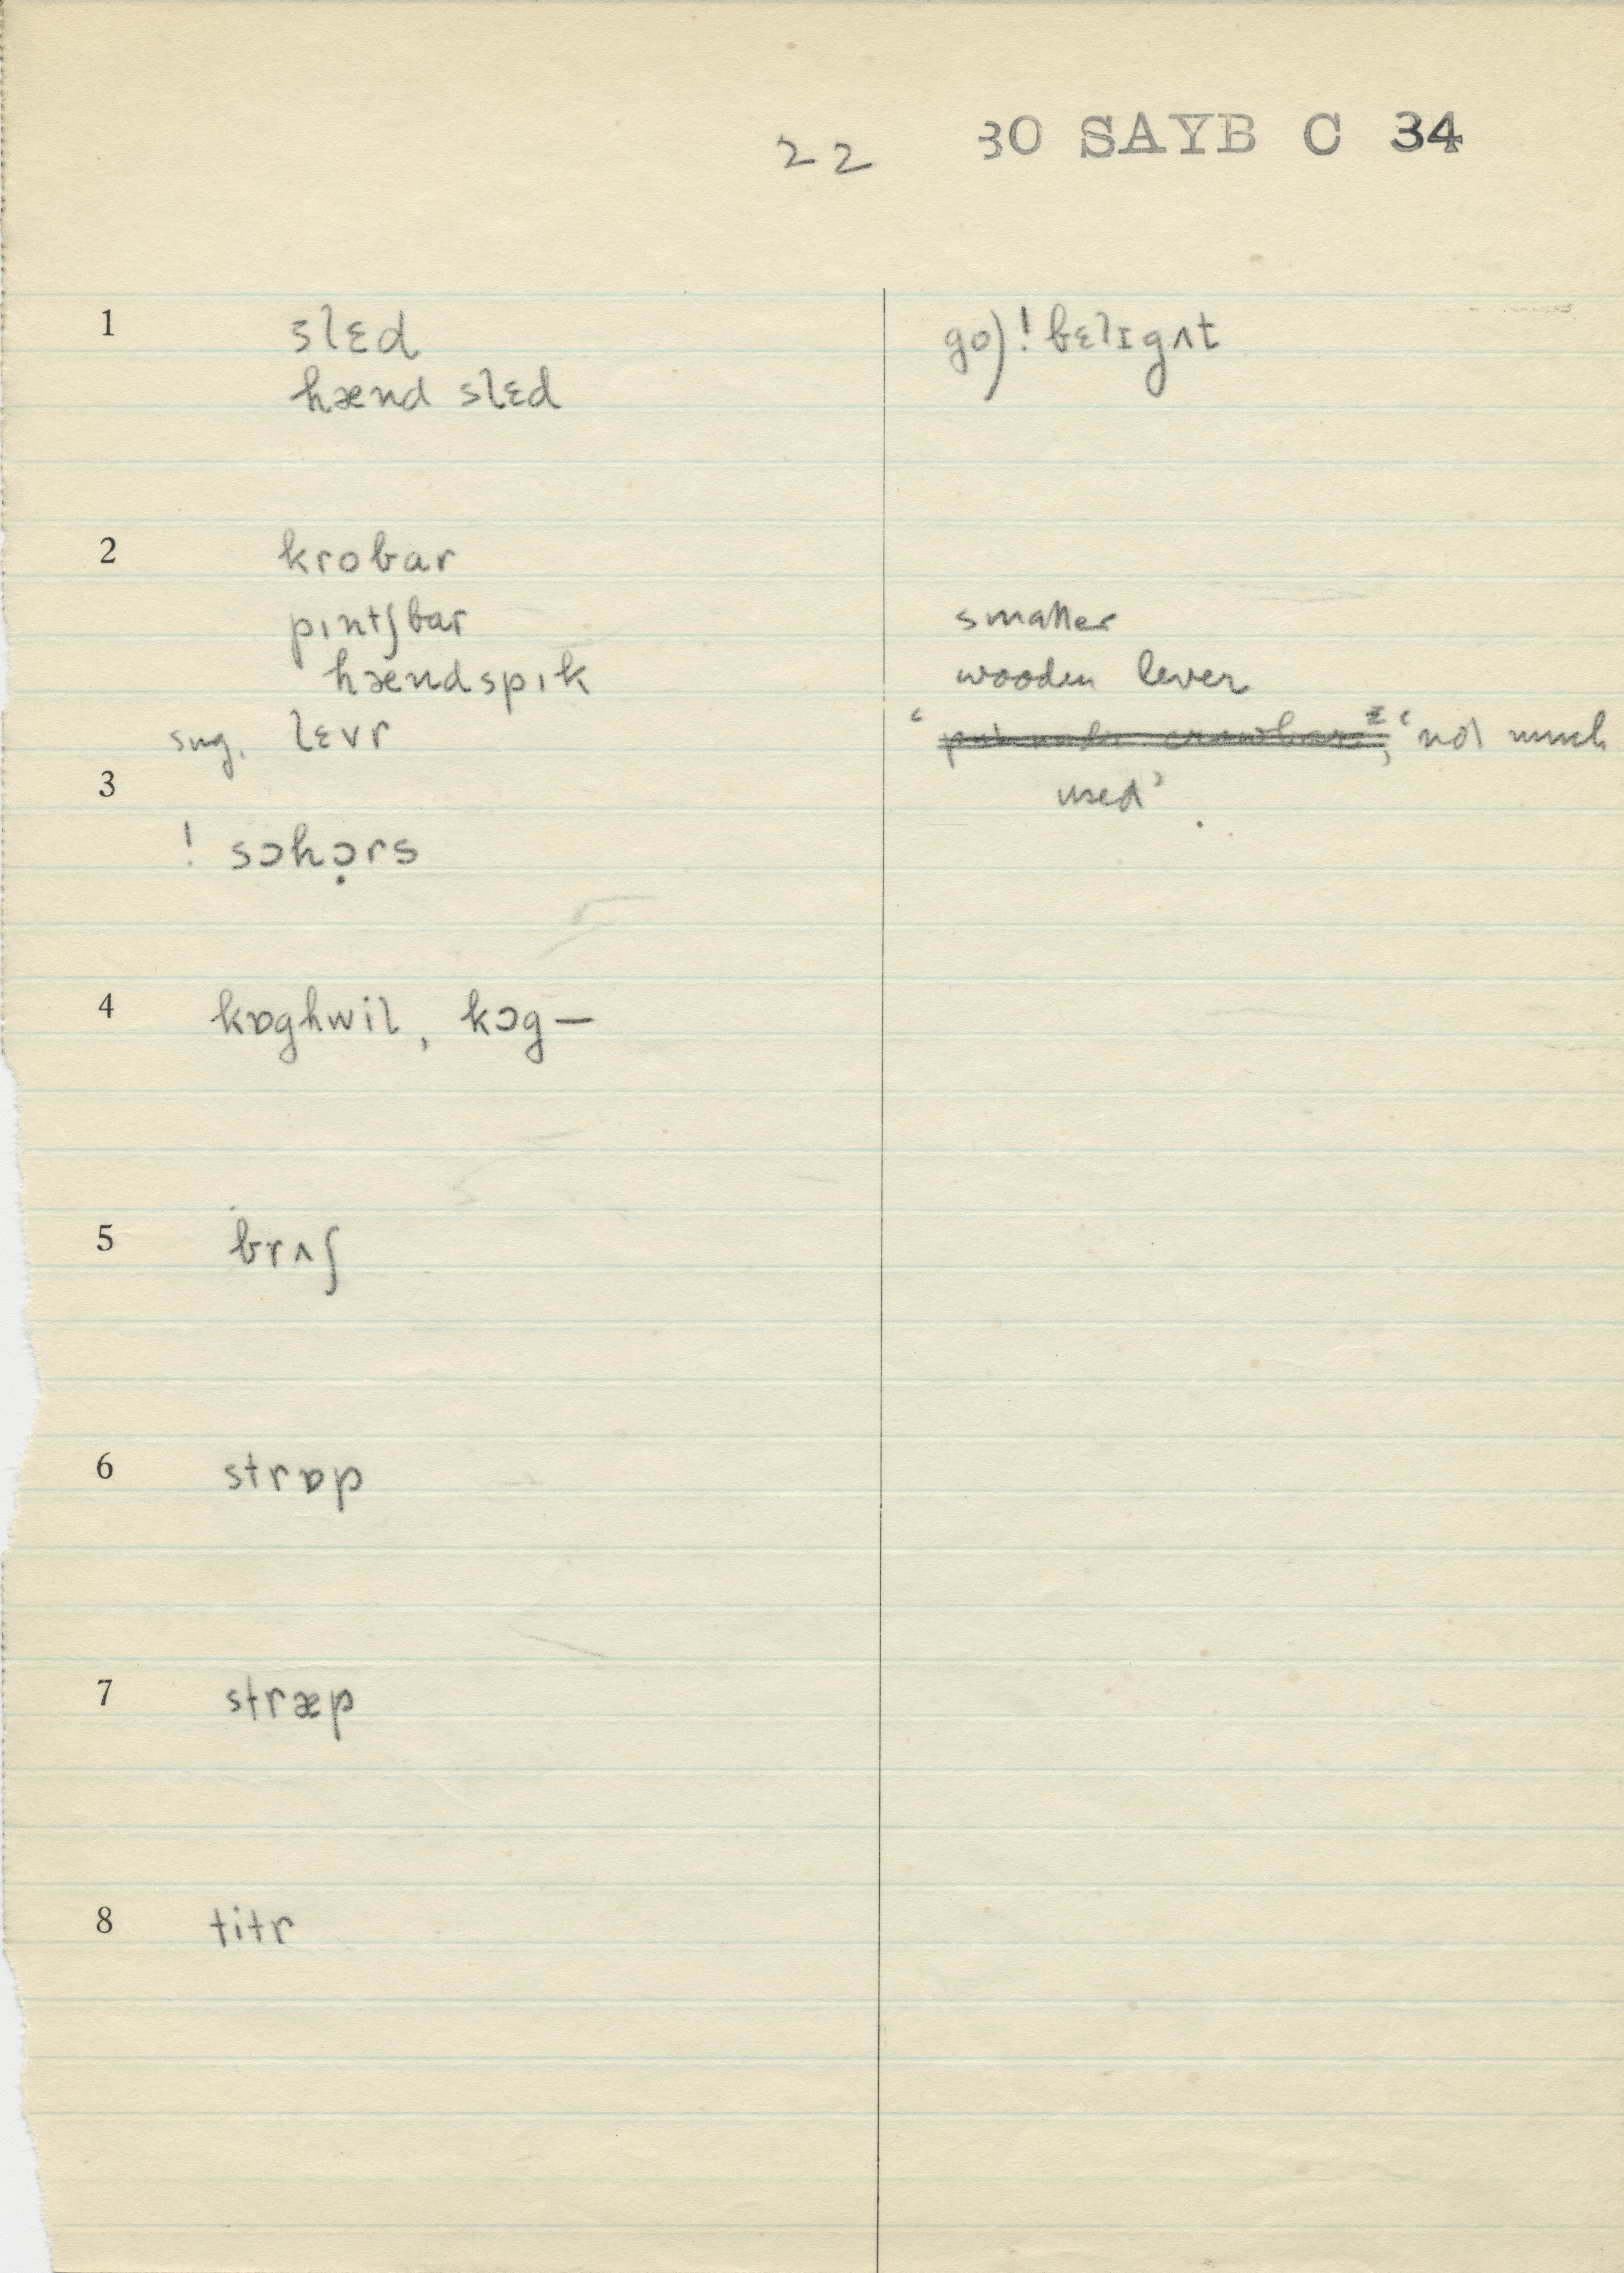 22 30 SAYB C 34
1 slɛd go) ! bɛlɪgʌt
hænd slɛd
2 krobar
pɪntʃbar smaller
hændspɪk wooden lever
sug. lɛvr ‘not much
3 used’.
! sɔhɔ̣rs
4 kɒghwil, kɔg—
5 brʌʃ
6 strɒp
7 stræp
8 titr